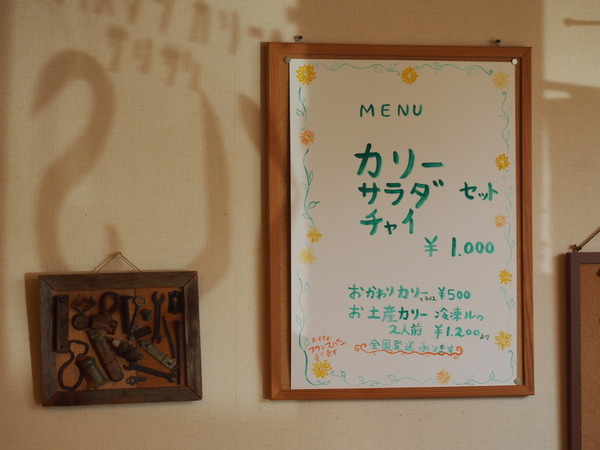 MENU
カリー
サラダ セット
チャイ
¥1.000
おかわりカリー ライス ¥500
お土産カリー 冷凍ルゥ
2人前 ¥1.200より
全国発送承ります
おすすめ
フランスパン